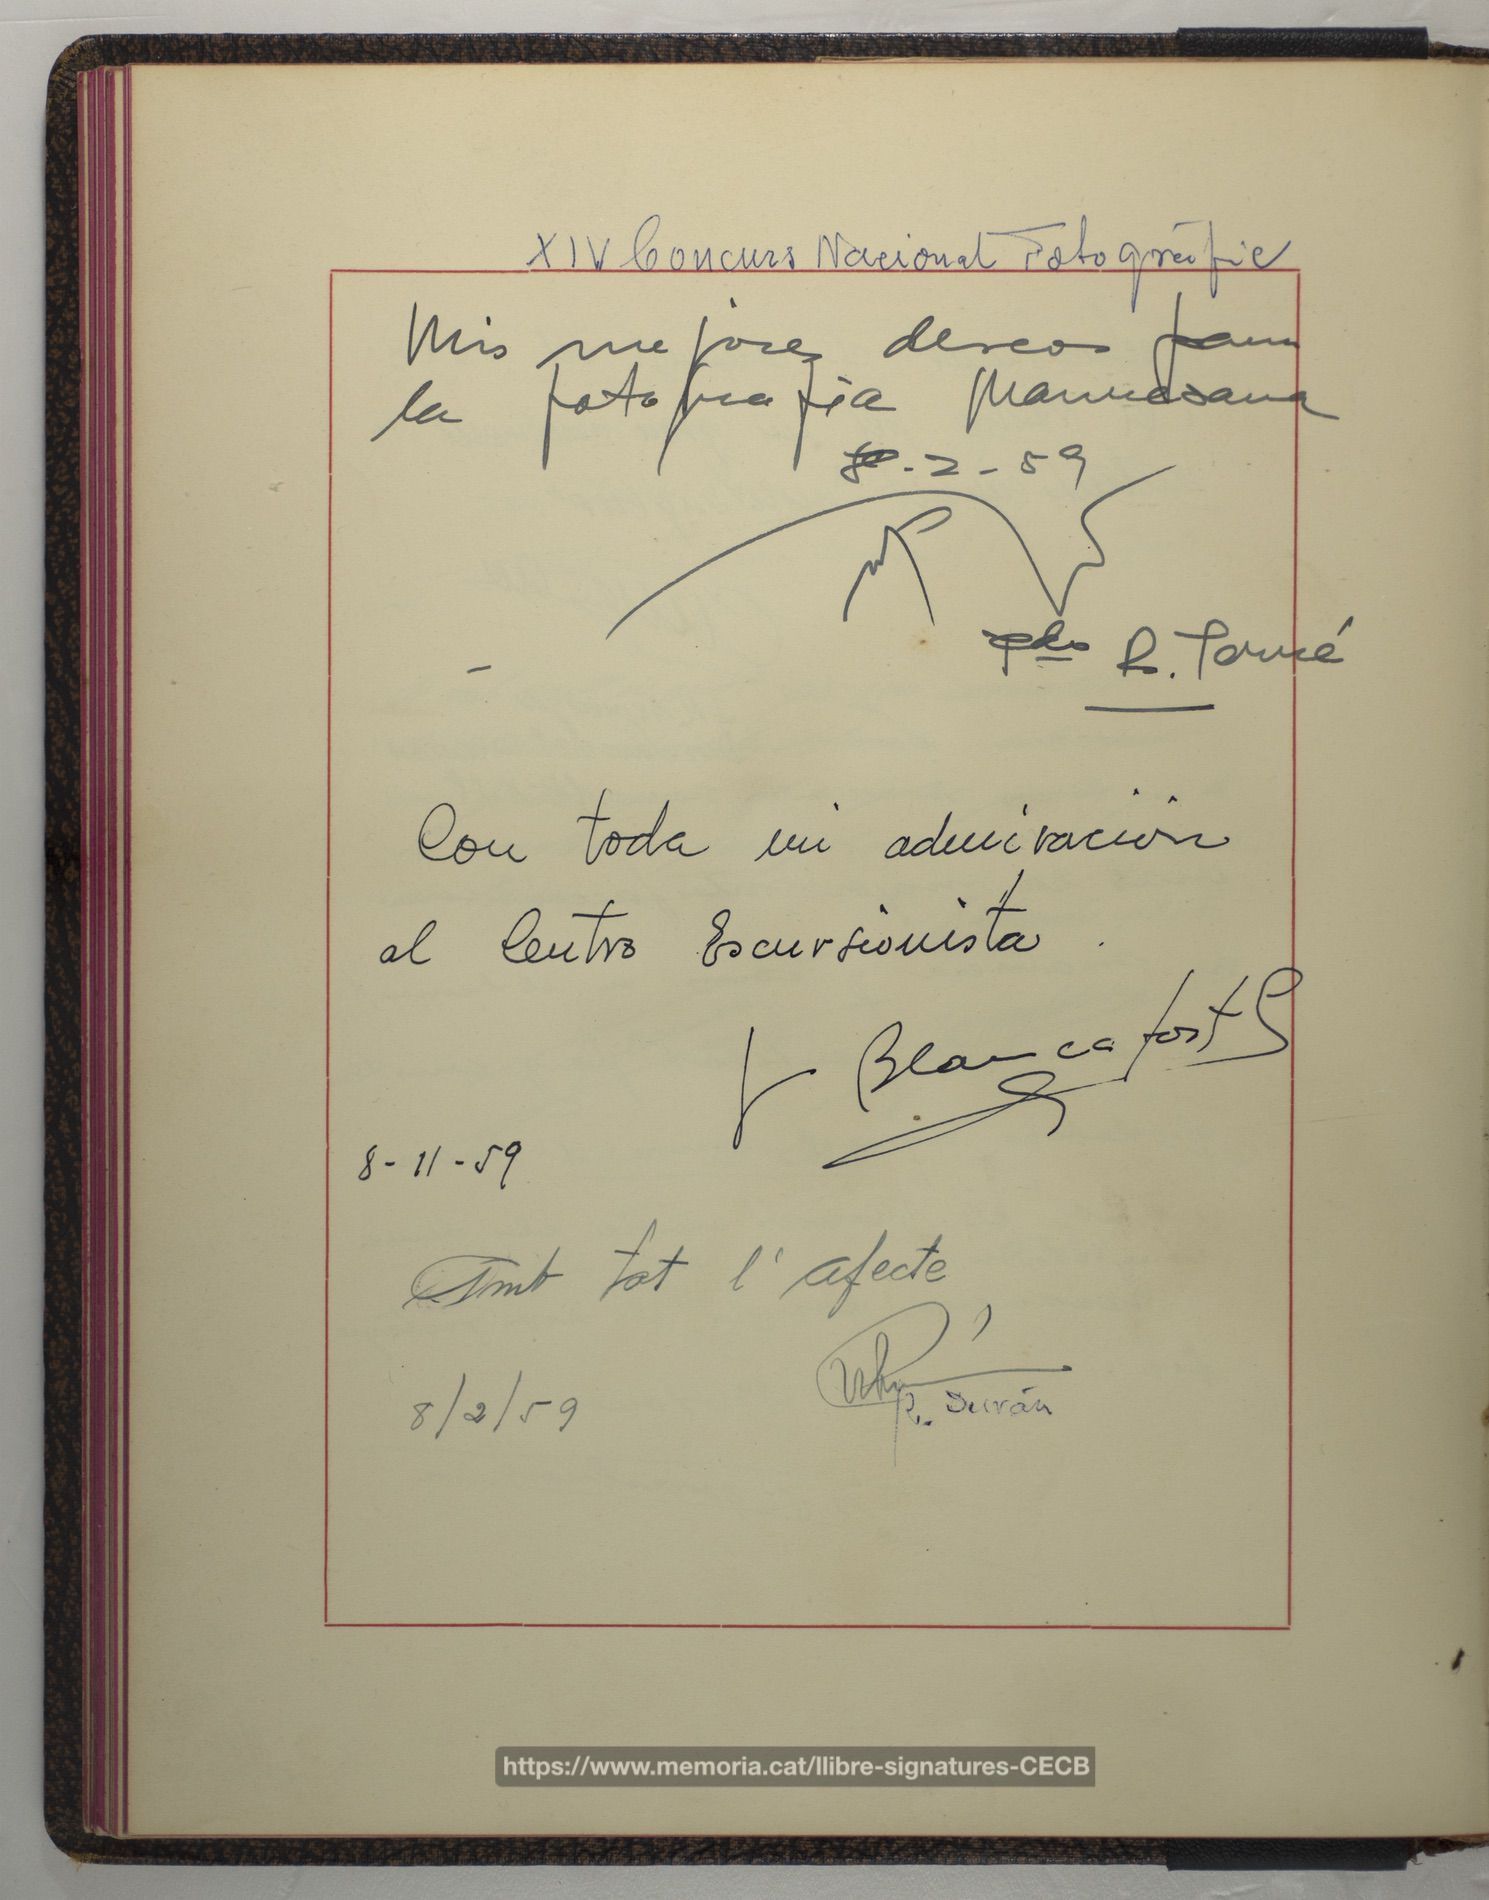 XIV Concurs Nacional Fotogràfic
Mis mejores deseos para
la fotografia Manresana
8-2-59
R. Tomé
Con toda mi admiración
al Centro Escursionista.
J Blancafort S
8-11-59
Amb tot l'afecte
R. Durán
8/2/59
https://www.memoria.cat/llibre-signatures-CECB